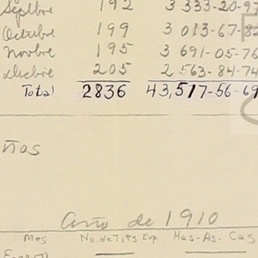 Septbre 192 3 333-20-97
Octubre 199 3 013-67-82
Novbre 195 3 691-05-76
Dicbre 205 2 563-84-74
Total 2836 43,517-56-69
ñas
Año de 1910
Mes No. de Tits Exp Has-As. Cas
Enero